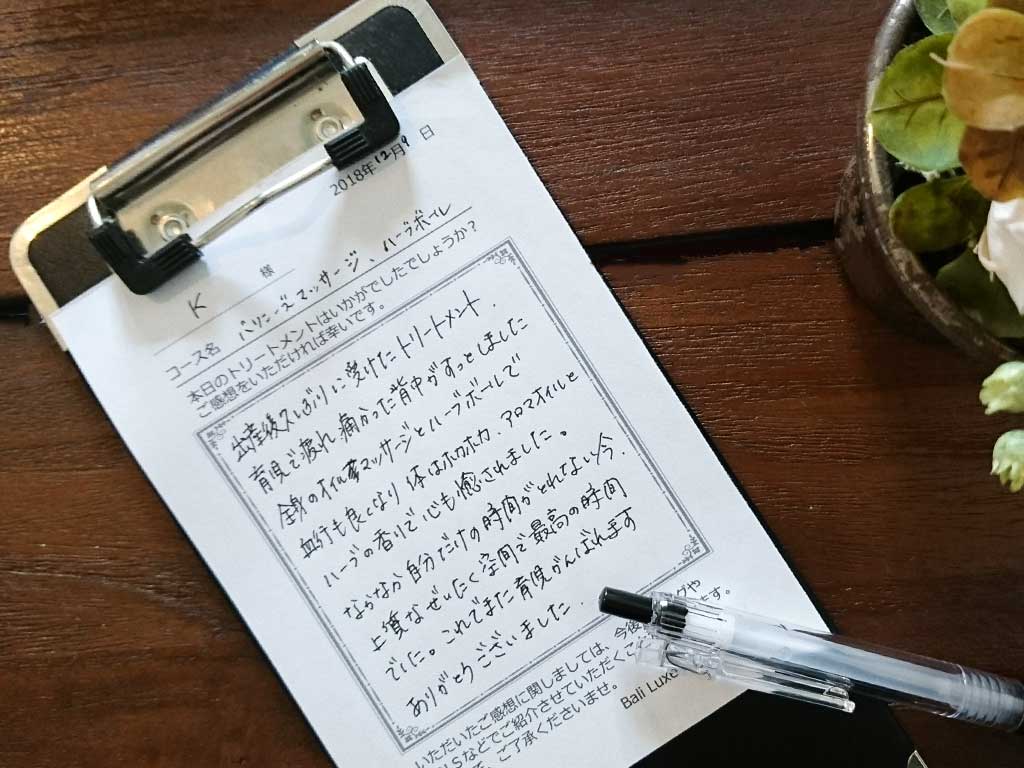 2018年12月9日
K 様
コース名 バリニーズマッサージ、ハーブボール
本日のトリートメントはいかがでしたでしょうか？
ご感想をいただければ幸いです。
出産後久しぶりに受けたトリートメント.
育児で疲れ痛かった背中がすっとしました
全身のオイルマッサージとハーブボールで
血行も良くなり体はホカホカ.アロマオイルと
ハーブの香りで心も癒されました。
なかなか自分だけの時間がとれない今.
上質なぜいたく空間で最高の時間
でした。これでまた育児がんばれます
ありがとうございました.
いただいたご感想に関しましては、今後
グや
ＮＳなどでご紹介させていただくこ
ます。
で、ご了承くださいませ。
Bali Luxe